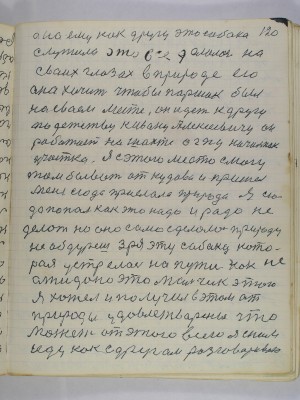 она ему как другу это собака 120
случила это все делала на
своих глазах в природе его
она хочит чтобы паршак был
на своем месте, он идет к другу
по детству к Ивану Алексеевичу он
работает на шахте с гжу начальник
участка. Я с этого место смогу
там бывает от куда я и пришел
меня сюда прислала природа Я сю
допопал как это надо и радо не
делат но оно само сделало природу
не обдуриш Зря эту собаку кото-
рая устрелась на пути как не
ожидано это мальчик этого
Я хотел и получил в этом от
природы удовлетварение что
может от этого всего Я с ним
еду как с другам разговариваю